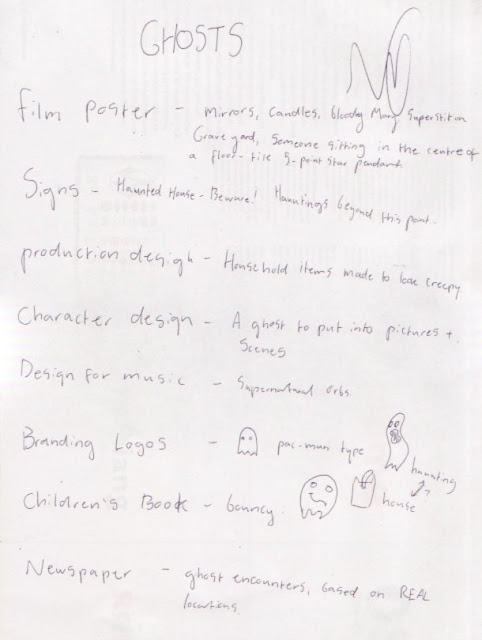 GHOSTS
film poster - mirrors, candles, bloody Mary superstition
Grave yard, someone sitting in the centre of
a floor-tile 5-point star
Signs - Haunted House - Beware! Hauntings beyond this point.
production design - Household items made to look creepy
Character design - A ghost to put into pictures +
scenes
Design for music - Supernatural orbs.
Branding Logos - pac-man type
haunting
Children's Book - bouncy.
house
Newspaper - ghost encounters, based on REAL
locations.